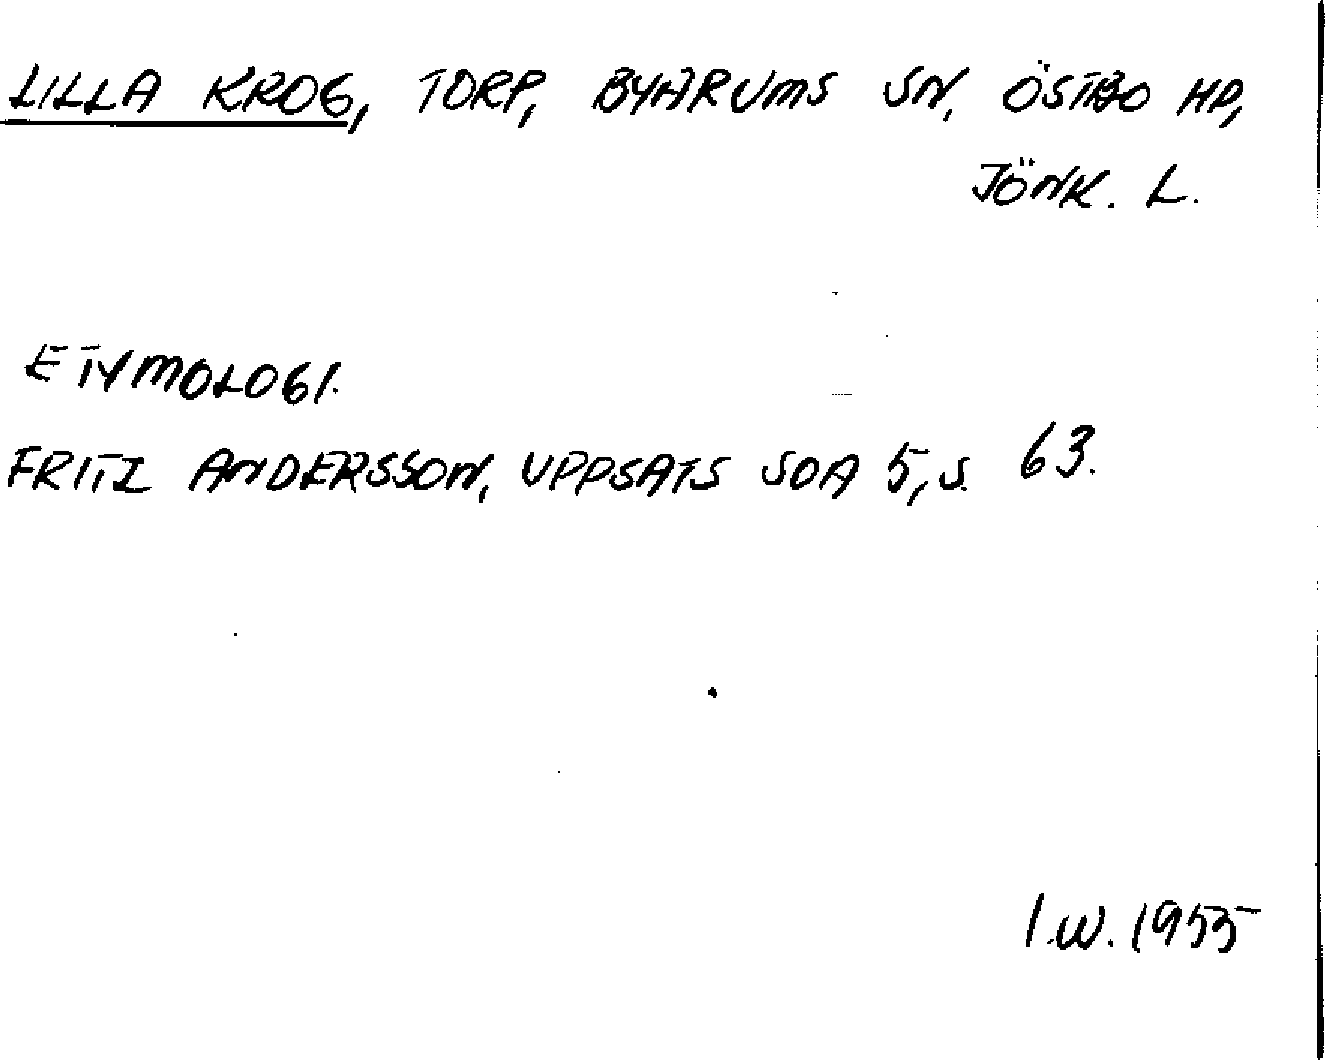 LILLA KROG, TORP, BYARUMS SN, ÖSTBO HD,
JÖNK. L.
ETYMOLOGI.
FRITZ ANDERSSON, UPPSATS SOA 5, S. 63.
I.W. 1955